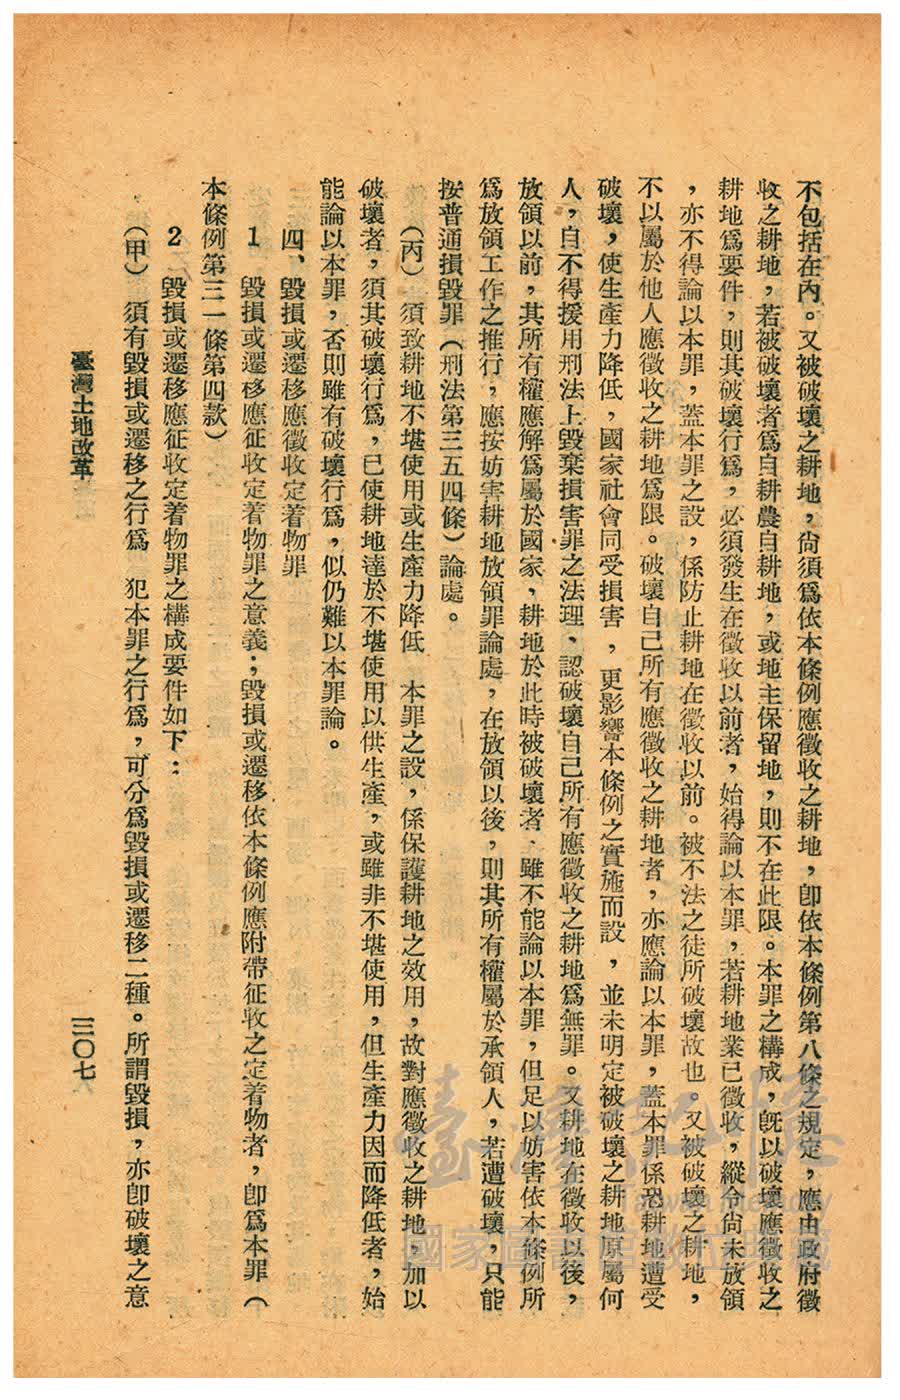 不包括在內。又被破壞之耕地，尙須爲依本條例應徵收之耕地，卽依本條例第八條之規定，應由政府徵
收之耕地，若被破壞者爲自耕農自耕地，或地主保留地，則不在此限。本罪之構成，旣以破壞應徵收之
耕地爲要件，則其破壞行爲，必須發生在徵收以前者，始得論以本罪，若耕地業已徵收，縱令尙未放領
，亦不得論以本罪，蓋本罪之設，係防止耕地在徵收以前。被不法之徒所破壞故也。又被破壞之耕地，
不以屬於他人應徵收之耕地爲限。破壞自己所有應徵收之耕地者，亦應論以本罪，蓋本罪係恐耕地遭受
破壞，使生產力降低，國家社會同受損害，更影響本條例之實施而設，並未明定被破壞之耕地原屬何
人，自不得援用刑法上毀棄損害罪之法理、認破壞自己所有應徵收之耕地爲無罪。又耕地在徵收以後，
放領以前，其所有權應解爲屬於國家，耕地於此時被破壞者、雖不能論以本罪，但足以妨害依本條例所
爲放領工作之推行，應按妨害耕地放領罪論處，在放領以後，則其所有權屬於承領人，若遭破壞，只能
按普通損毀罪（刑法第三五四條）論處。
（丙）須致耕地不堪使用或生產力降低　本罪之設，係保護耕地之效用，故對應徵收之耕地，加以
破壞者，須其破壞行爲，已使耕地達於不堪使用以供生產，或雖非不堪使用，但生產力因而降低者，始
能論以本罪，否則雖有破壞行爲，似仍難以本罪論。
四、毀損或遷移應徵收定着物罪
1　毀損或遷移應征收定着物罪之意義；毀損或遷移依本條例應附帶征收之定着物者，卽爲本罪（
本條例第三一條第四款）
2　毀損或遷移應征收定着物罪之構成要件如下：
（甲）須有毀損或遷移之行爲　犯本罪之行爲，可分爲毀損或遷移二種。所謂毀損，亦卽破壞之意
臺灣土地改革
三〇七
臺灣記憶
Taiwan Memory
國家圖書館數位典藏